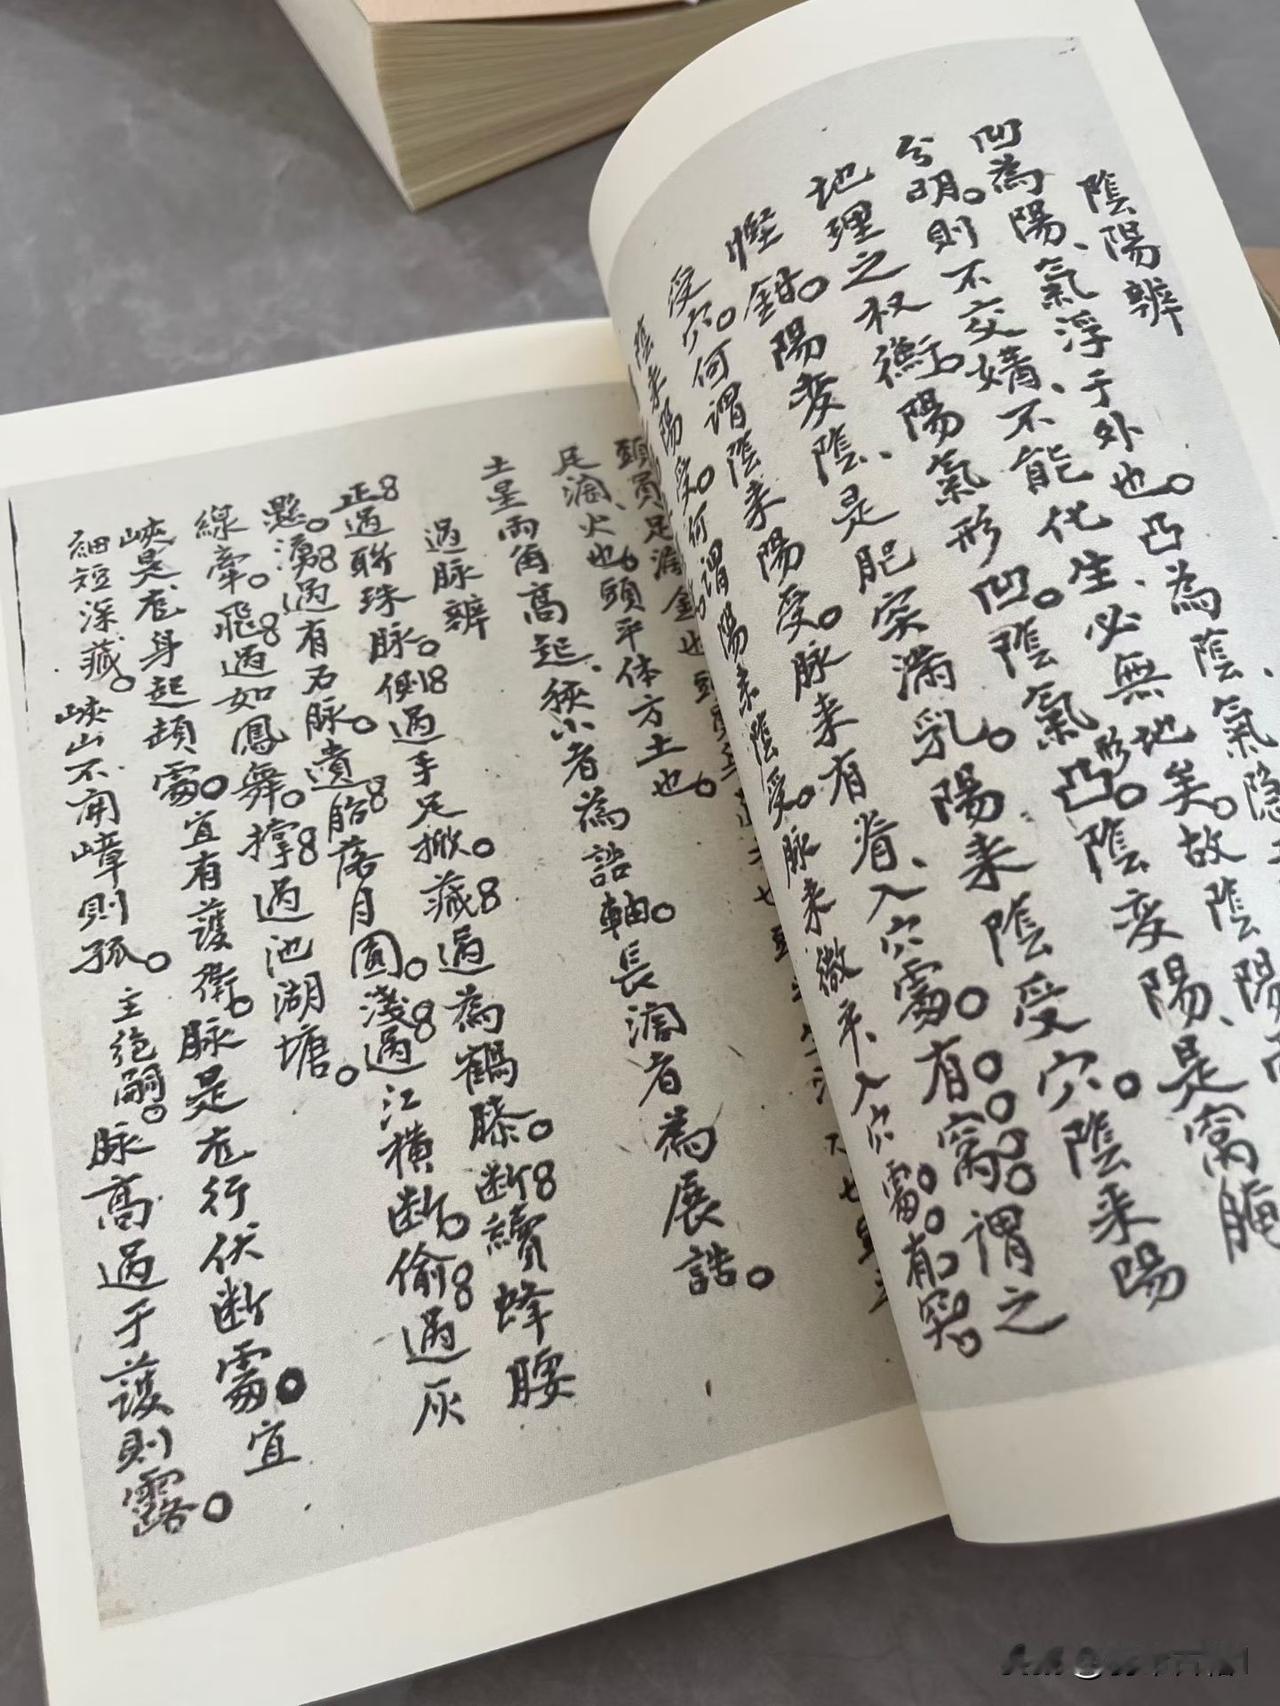 陰陽辨
凹為陽、氣浮于外也。凸為陰氣隐
兮明。則不交媾、不能化生、必無地矣。故陰陽
地理之权衡。陽氣形凹。陰氣凸形。陰变陽、是窩
鉗。陽变陰、是肥突满乳。陽来陰受穴。陰来陽
受穴。何謂陰来陽受。脉来有脊、入穴䨓。有窩。謂之
陰来陽受。何謂陽来陰受。脉来微平、入穴䨓。有突。
頭員足
足濶火也。頭平体方土也。
土星両角高起、狹小者為誥軸。長濶者為展誥。
過脉辨
正過聨珠脉。側過手足掀。藏過為鶴膝。断續蜂腰
懸。湧過有石脉。遺胎落月圓。淺過江横断。偷過灰
線牽。飛過如鳳舞。撑過池湖塘。
峽是龙身起頓䨓。宜有護衛。脉是龙行伏断䨓。宜
細短深藏。峽山不開嶂則孤。主絶嗣。脉高過于護則露。